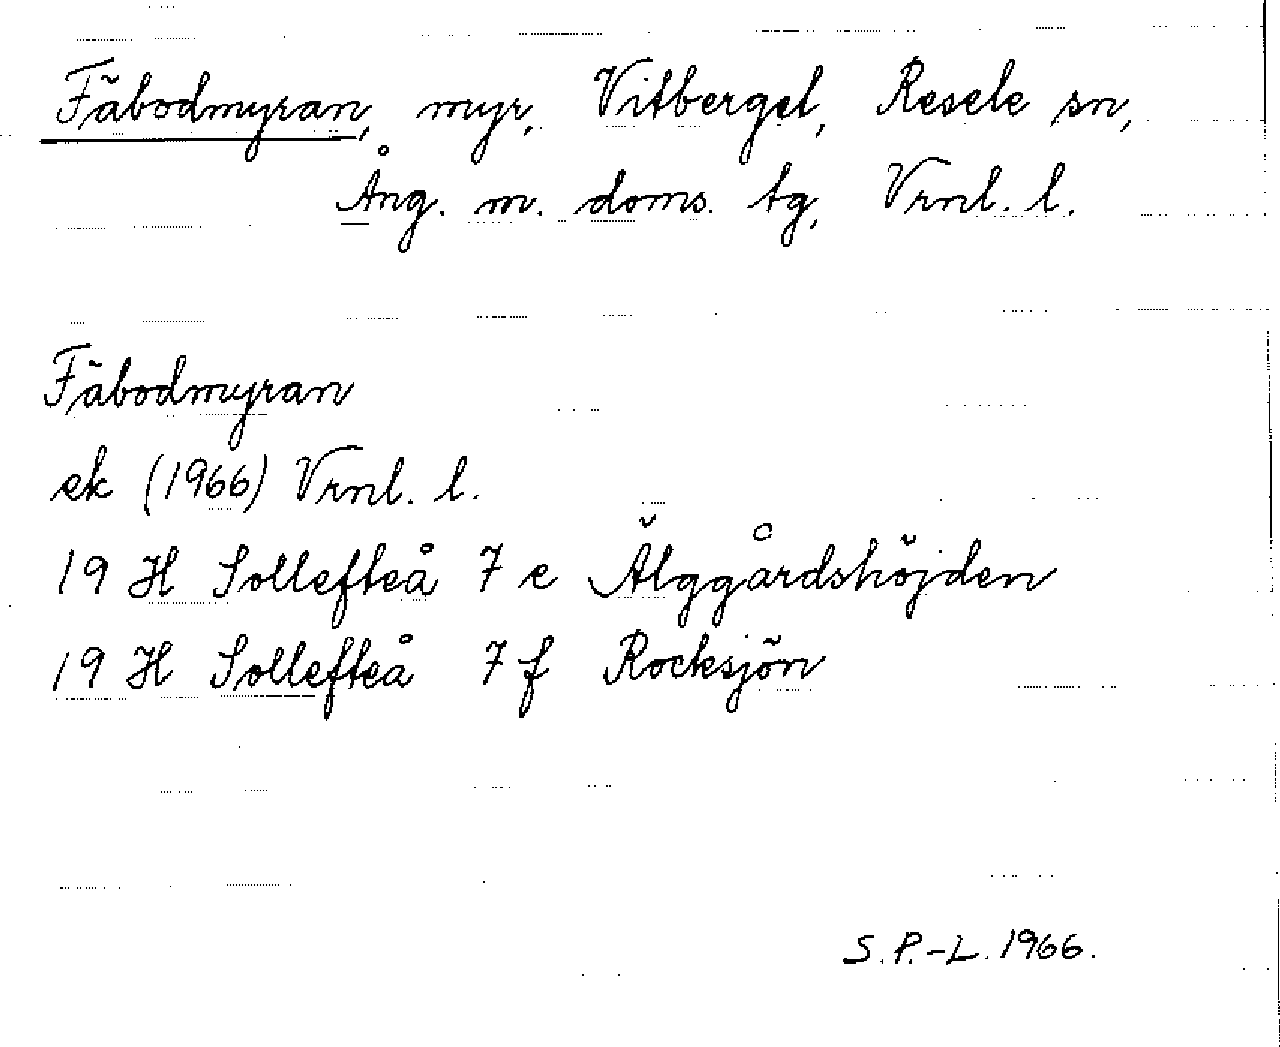 Fäbodmyran, myr, Vitberget, Resele sn,
Ång. m. doms. tg, Vrnl. l.
Fäbodmyran
ek (1966) Vrnl. l.
19 H Sollefteå 7 e Älggårdshöjden
19 H Sollefteå 7 f Rocksjön
S.P.-L. 1966.